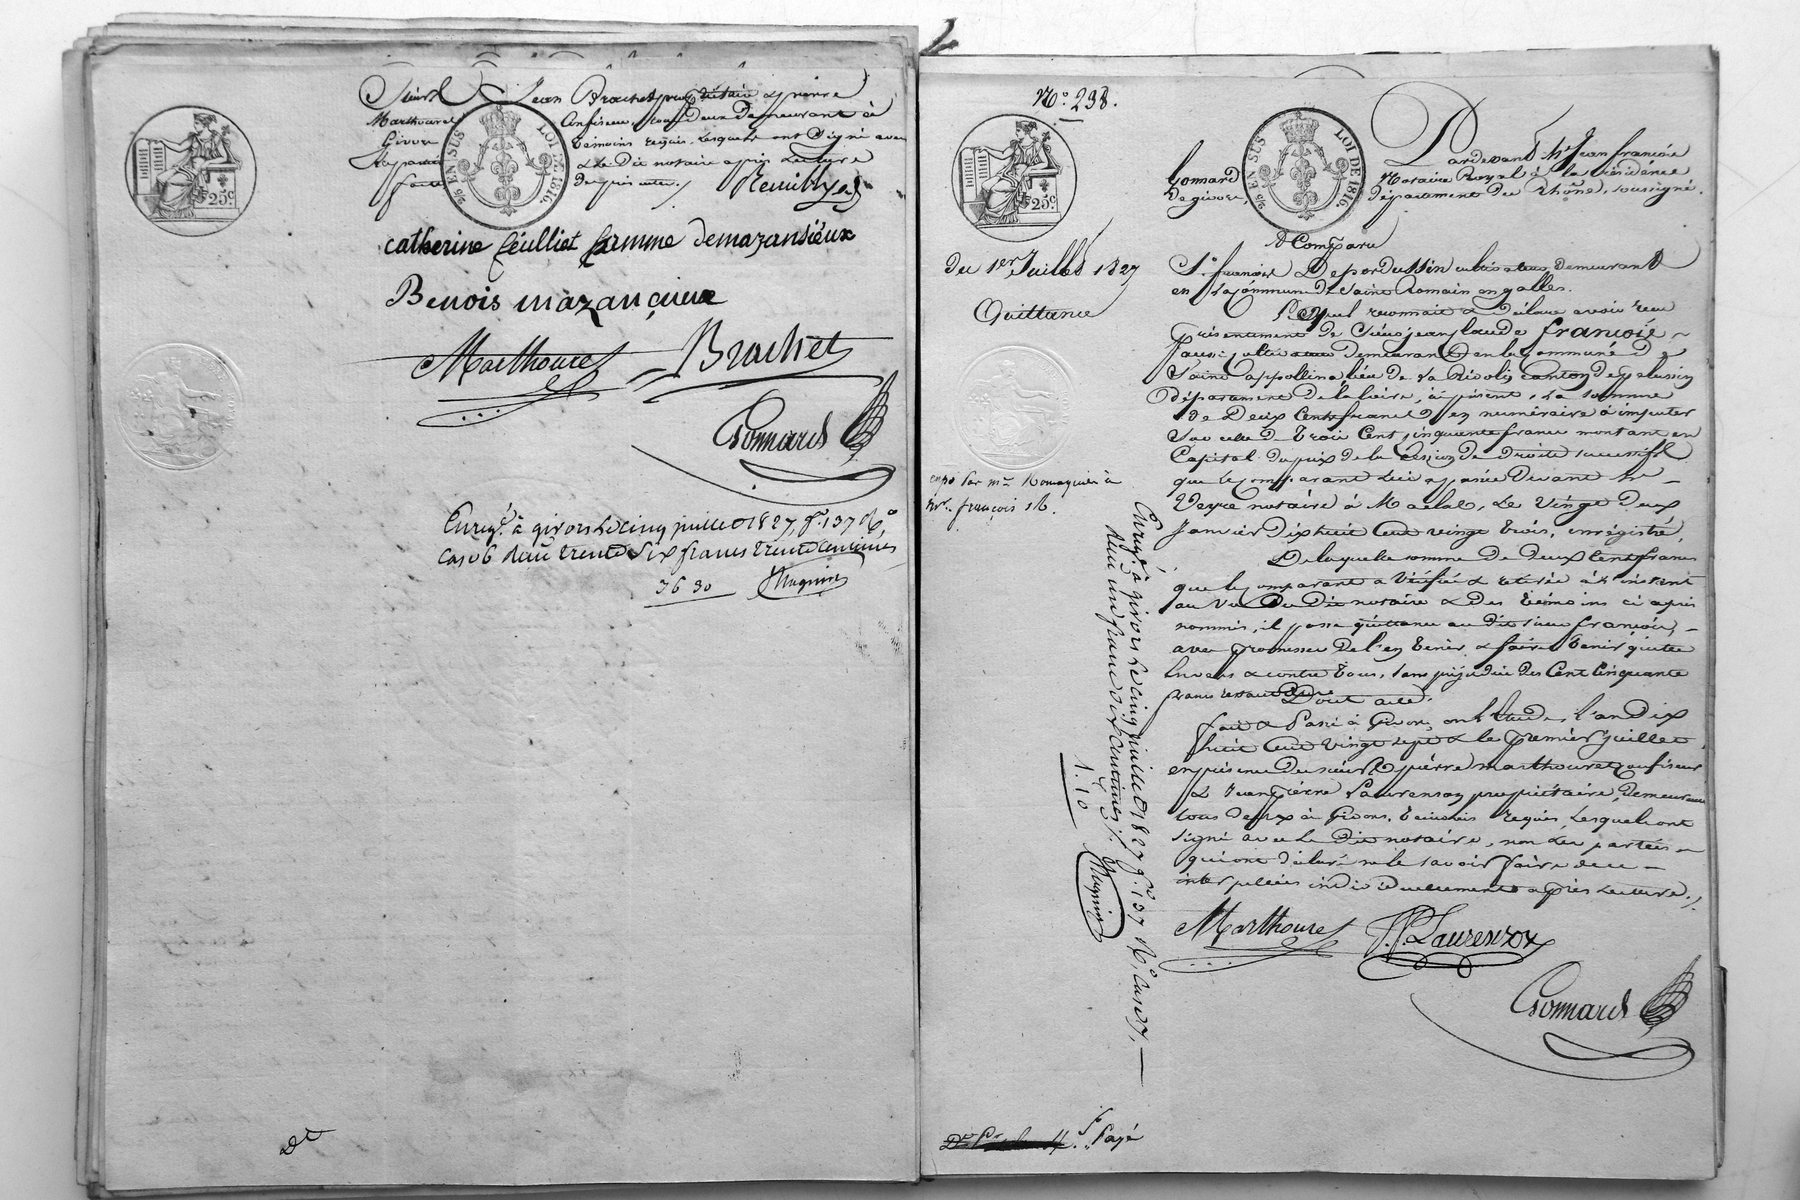 Sieurs Jean Brachet propriétaire & pierre
Marthouret Confiseur, tous deux demeurant à
Givors témoins requis, lesquels ont signé avec
les parties & le Dit notaire après Lecture
faite
EN SUS LOI DE 1816.
25 c.
catherine femme demazansieux
Benois mazançieux
Marthouret Brachet
Gonnard
Enreg.é à givors le cinq juillet 1827, f.º 137 R.º
Cas 6 Reçu trente Six francs trente centimes
36 30 Mugnier
N.º 298.
25 c.
EN SUS LOI DE 1816.
Pardevant M.e Jean françois
Gonnard Notaire Royal à la résidence
de givors, département du Rhône, soussigné.
A Comparu
du 1er Juillet 1827
Quittance
S.r françois Depordussin cultivateur demeurant
en la Commune de Saint Romain en galles.
Lequel reconnait & déclare avoir reçu
présentement de Sieur jean Claude françois
aussi cultivateur demeurant en la Commune de
Saint appollinal, lieu de la Rivoly canton de pelussin
département de la Loire, à présent, la somme
de Deux Cents francs en numéraire à imputer
sur celle de trois Cent cinquante francs montant en
Capital du prix de la Cession de droits successifs
que le comparant lui a passée devant M.e
Veyre notaire à Maclas, Le Vingt Deux
Janvier dix huit Cent vingt trois, enregistré,
De laquelle somme de deux Cents francs
que le comparant a vérifiée & retirée à l'instant
au vu du Dit notaire & des témoins ci après
nommés, il passe quittance au dit sieur françois,
avec promesse de l'en tenir & faire tenir quitte
Envers & contre tous, sans préjudice des Cent Cinquante
francs restant
Dont acte.
fait & passé à Givors, en l'Etude, l'an Dix
huit Cent vingt sept & le premier juillet
en présence des sieurs pierre marthouret confiseur
& Jean pierre Laurenson propriétaire, demeurant
tous deux à Givors, témoins requis, Lesquels ont
signé avec le Dit notaire, non les parties
qui ont déclaré ne le savoir faire de ce
interpellées individuellement après Lecture.
Marthouret J.P. Laurenson
Gonnard
françois
Enreg.é à givors le cinq juillet 1827 f.º 137 R.º Case 7,
Reçu un franc dix centimes
1. 10 Mugnier
Payé